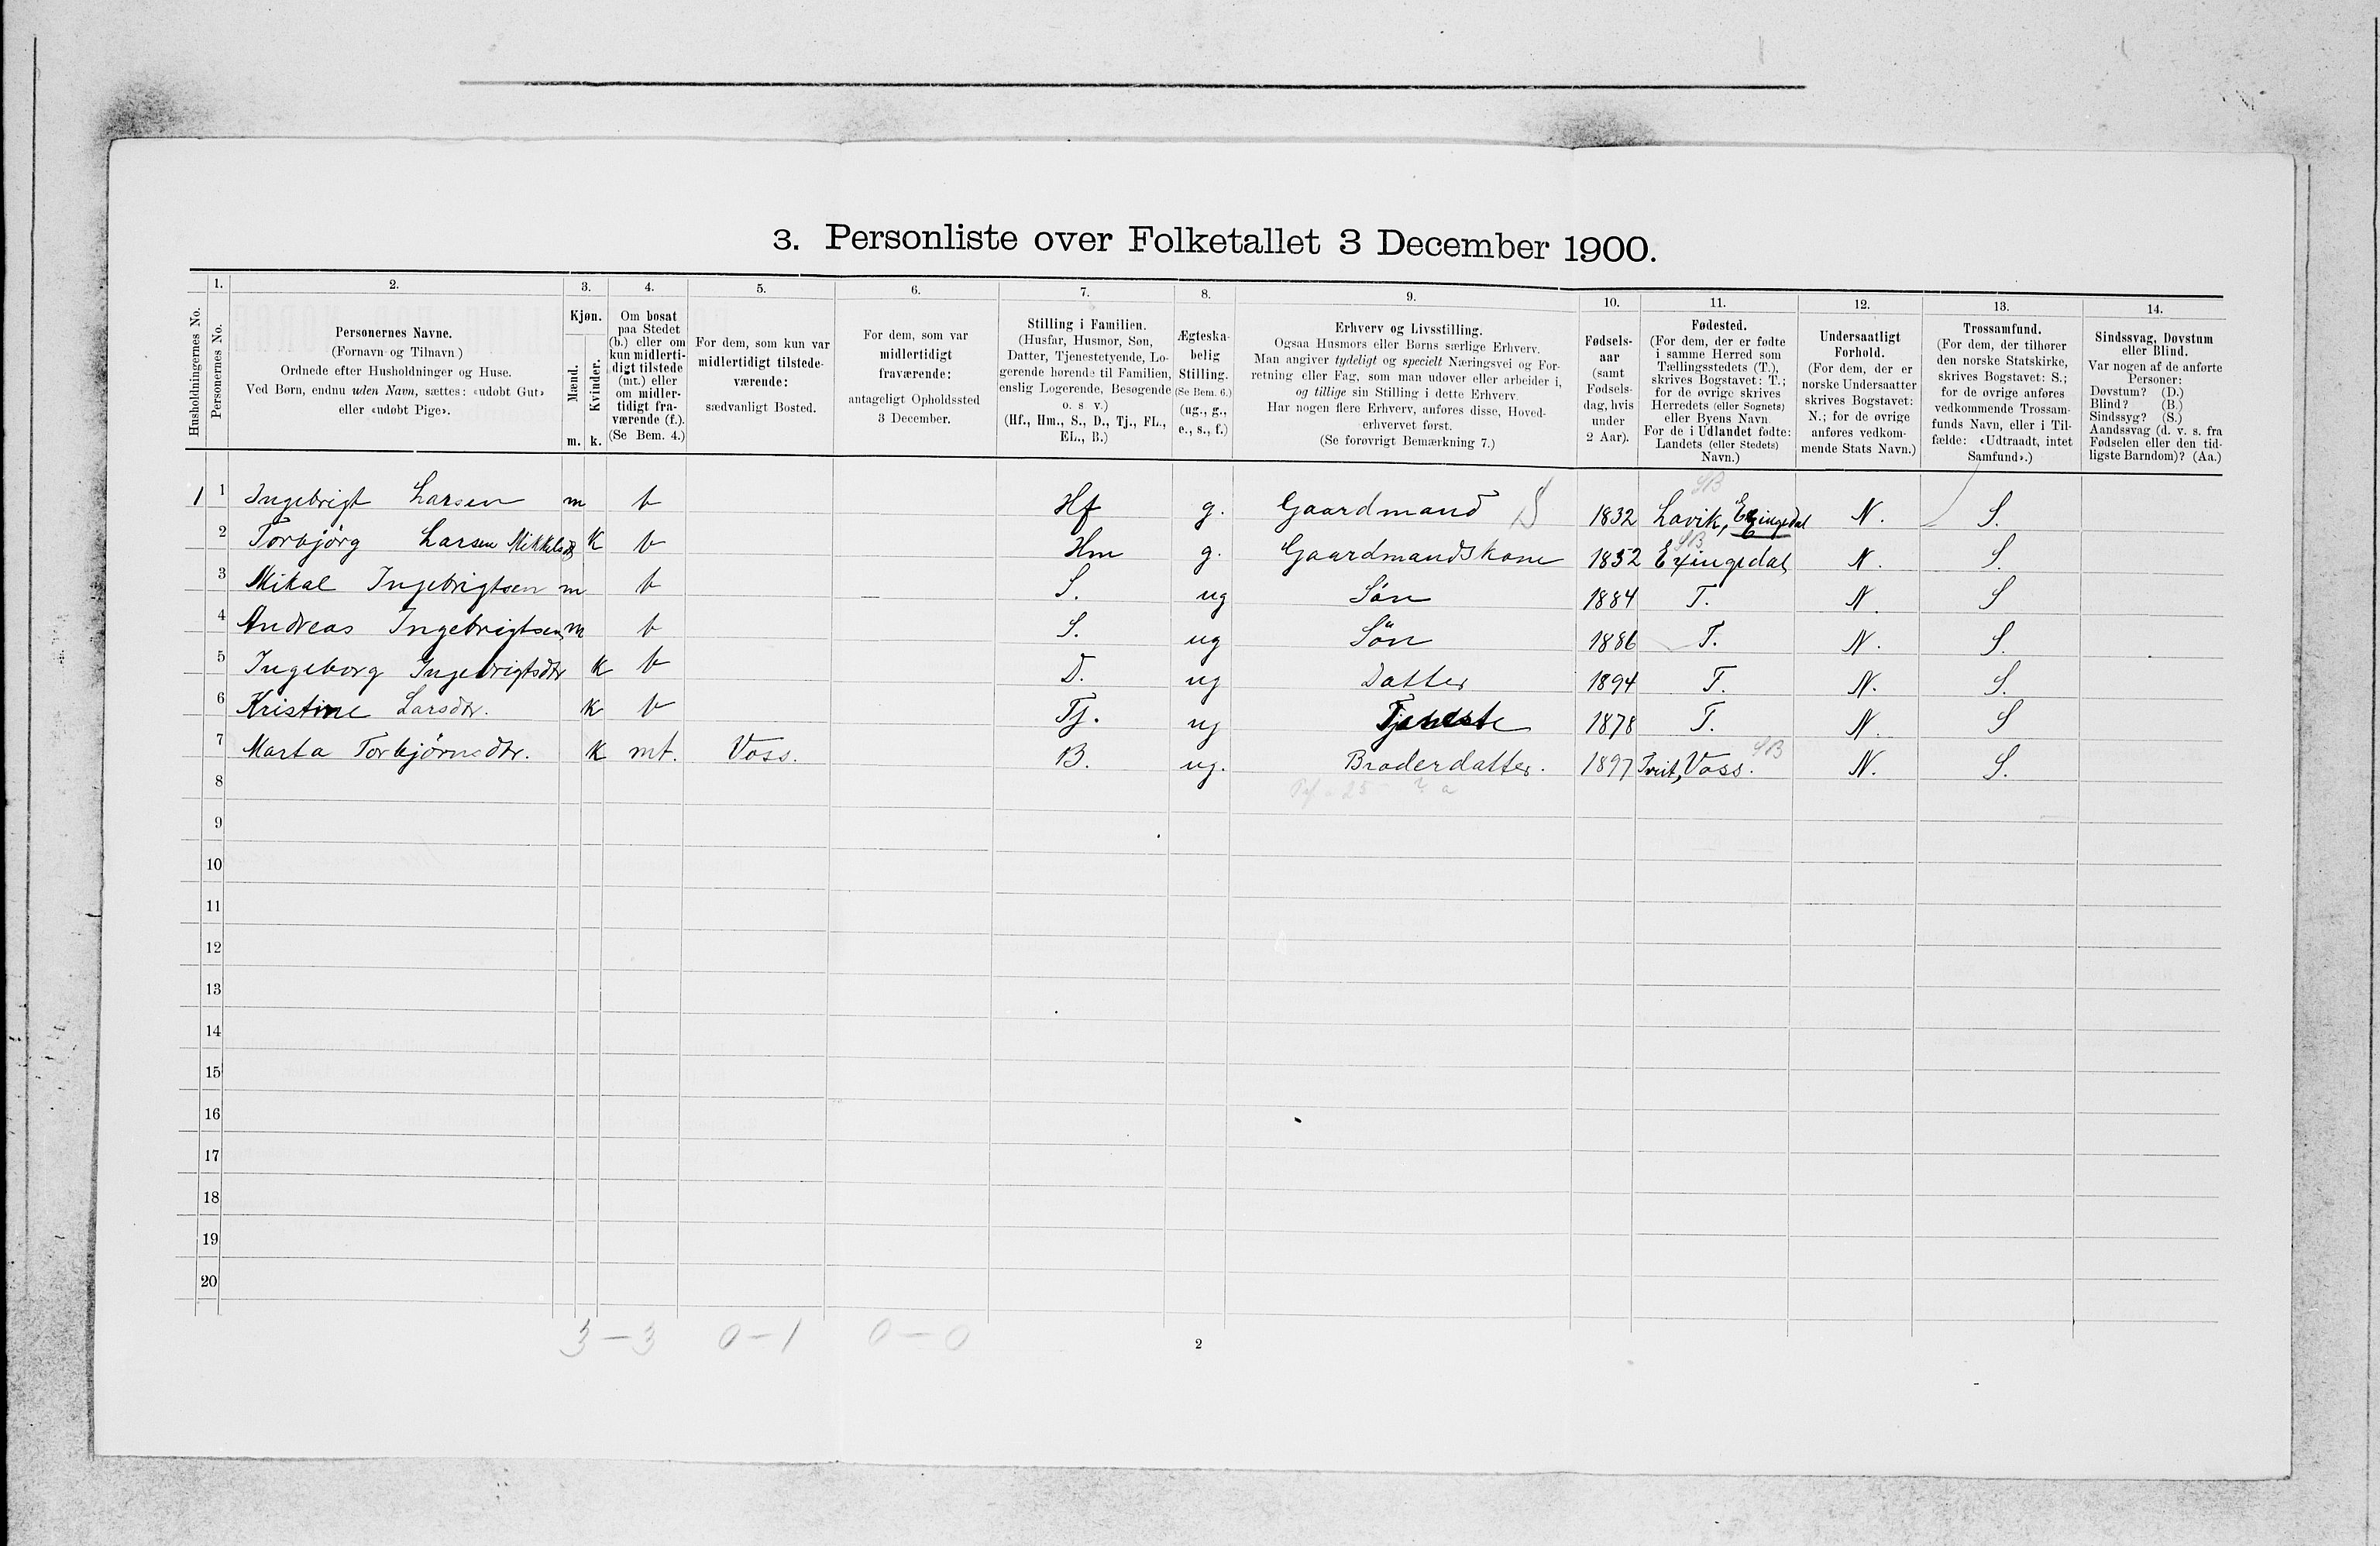 3. Personliste over Folketallet 3 December 1900.
Husholdningernes No.
1.
Personernes No.
2.
Personernes Navne.
(Fornavn og Tilnavn)
Ordnede efter Husholdninger og Huse.
Ved Børn, endnu uden Navn, sættes: «udøbt Gut»
eller «udøbt Pige».
3.
Kjøn.
Mænd.
Kvinder.
m. k.
4.
Om bosat
paa Stedet
(b.) eller om
kun midlerti-
digt tilstede
(mt.) eller
om midler-
tidigt fra-
værende (f.).
(Se Bem. 4.)
5.
For dem, som kun var
midlertidigt tilstede-
værende:
sædvanligt Bosted.
6.
For dem, som var
midlertidigt
fraværende:
antageligt Opholdssted
3 December.
7.
Stilling i Familien.
(Husfar, Husmor, Søn,
Datter, Tjenestetyende, Lo-
gerende hørende til Familien,
enslig Logerende, Besøgende
o. s v.)
(Hf., Hm., S., D., Tj., FL.,
EL., B.)
8.
Ægteska-
belig
Stilling.
(Se Bem. 6.)
(ug., g.,
e., s., f.)
9.
Erhverv og Livsstilling.
Ogsaa Husmors eller Børns særlige Erhverv.
Man angiver tydeligt og specielt Næringsvei og For-
retning eller Fag, som man udøver eller arbeider i,
og tillige sin Stilling i dette Erhverv.
Har nogen flere Erhverv, anføres disse, Hoved-
erhvervet først.
(Se forøvrigt Bemærkning 7.)
10.
Fødsels-
aar
(samt
Fødsels-
dag, hvis
under
2 Aar).
11.
Fødested.
(For dem, der er fødte
i samme Herred som
Tællingsstedets (T.),
skrives Bogstavet: T.;
for de øvrige skrives
Herredets (eller Sognets)
eller Byens Navn.
For de i Udlandet fødte:
Landets (eller Stedets)
Navn.)
12.
Undersaatligt
Forhold.
(For dem, der er
norske Undersaatter
skrives Bogstavet:
N.; for de øvrige
anføres vedkom-
mende Stats Navn.)
13.
Trossamfund.
(For dem, der tilhører
den norske Statskirke,
skrives Bogstavet: S.;
for de øvrige anføres
vedkommende Trossam-
funds Navn, eller i Til-
fælde: «Udtraadt, intet
Samfund».)
14.
Sindssvag, Døvstum
eller Blind.
Var nogen af de anførte
Personer:
Døvstum? (D.)
Blind? (B.)
Sindssyg? (S.)
Aandssvag (d. v. s. fra
Fødselen eller den tid-
ligste Barndom)? (Aa.)
SB
1 1 Ingebrigt Larsen m b Hf g. Gaardmand S 1832 Lavik, Exingedal N. S.
SB
2 Torbjörg Larsen Mikkelsd k b Hm g. Gaardmandskone 1852 Exingedal N. S.
3 Mikal Ingebrigtsen m b S. ug Sön 1884 T. N. S
4 Andreas Ingebrigtsen m b S. ug Sön 1886 T. N. S.
5 Ingeborg Ingebrigtsdtr k b D. ug Datter 1894 T. N. S.
6 Kristine Larsdtr. k b Tj. ug Tjeneste 1878 T. N. S
7 Marta Torbjörnsdtr. k mt. Voss. B. ug. Broderdatter. 1897 Tveit, Voss. SB N. S.
8
9
10
11
12
13
14
15
16
17
18
19
20
3 – 3 0 – 1 0 – 0
2